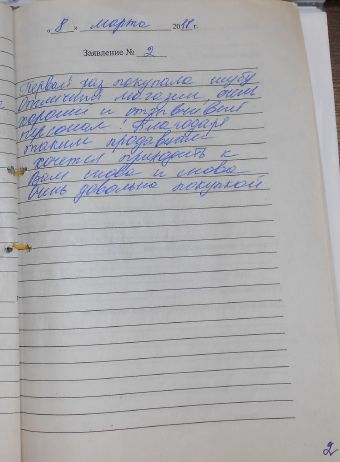 « 8 » марта 2018 г.
Заявление № 2
Первый раз покупала шубу
Отличный магазин, очень
хороший и отзывчивый
персонал! Благодаря
таким продавцам!
хочется приходить к
Вам снова и снова
Очень довольна покупкой
2